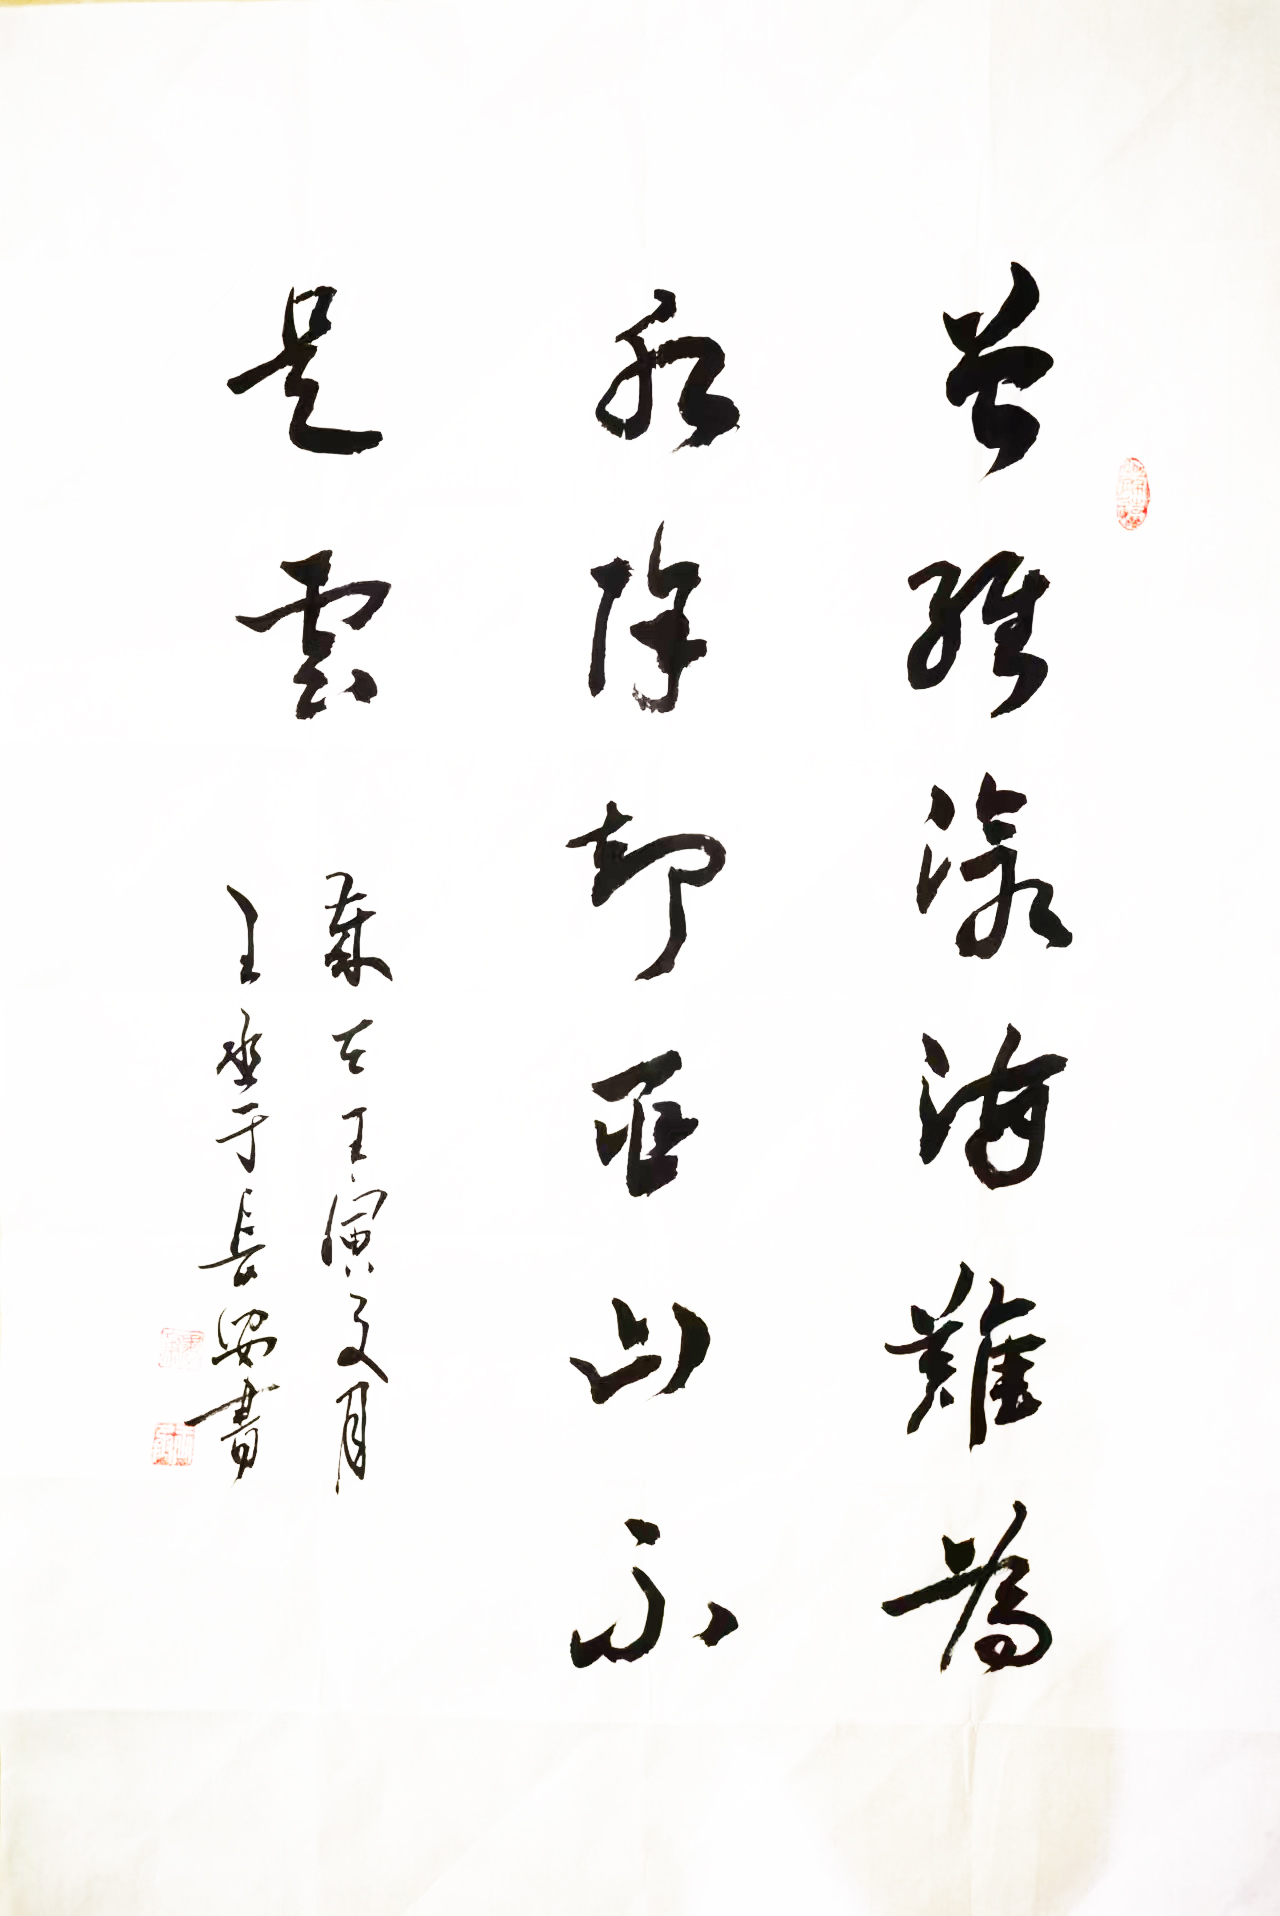 曾經滄海難為
水除却巫山不
是雲
歲在壬寅夏月
王于長安書